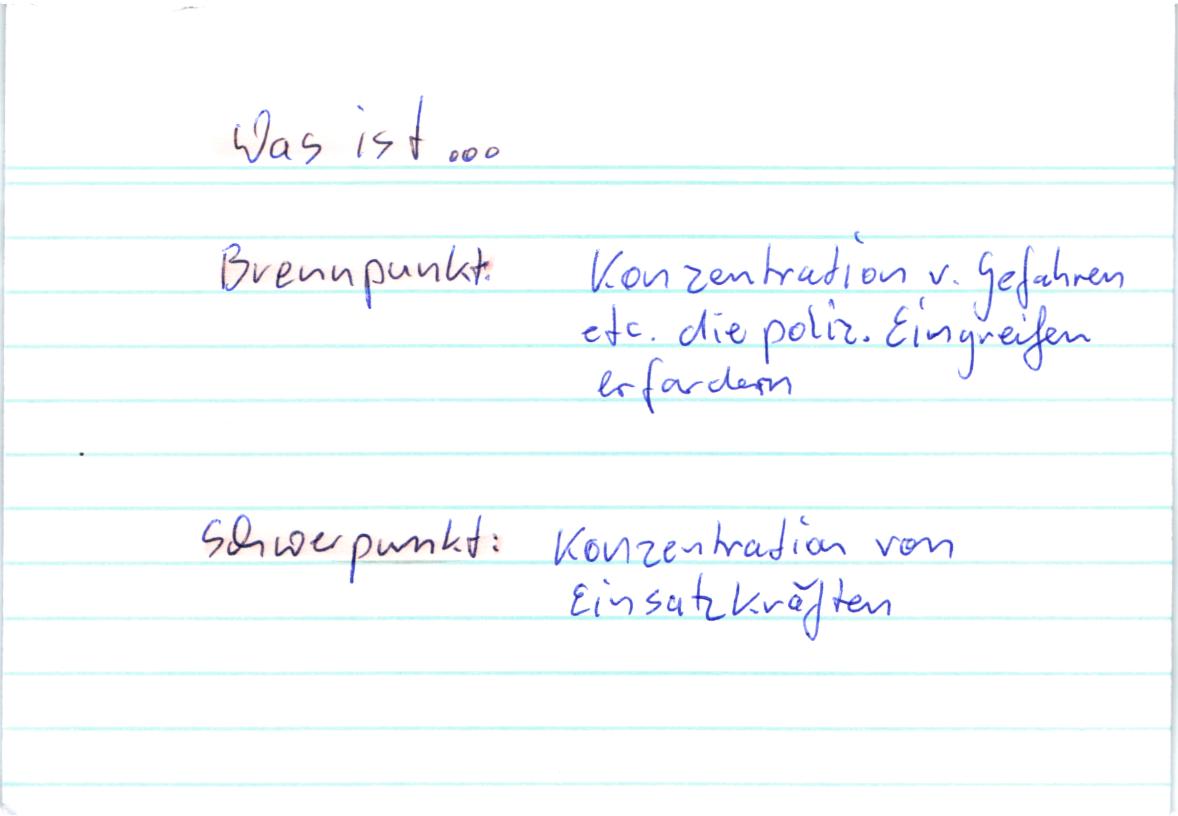 Was ist ...
Brennpunkt: Konzentration v. Gefahren
etc. die poliz. Eingreifen
erfordern
Schwerpunkt: Konzentration von
Einsatzkräften